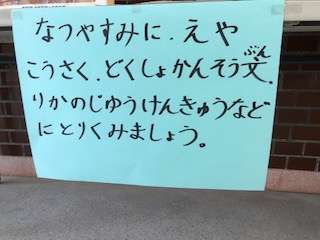 なつやすみに、えや
こうさく、どくしょかんそう文、
りかのじゆうけんきゅうなど
にとりくみましょう。